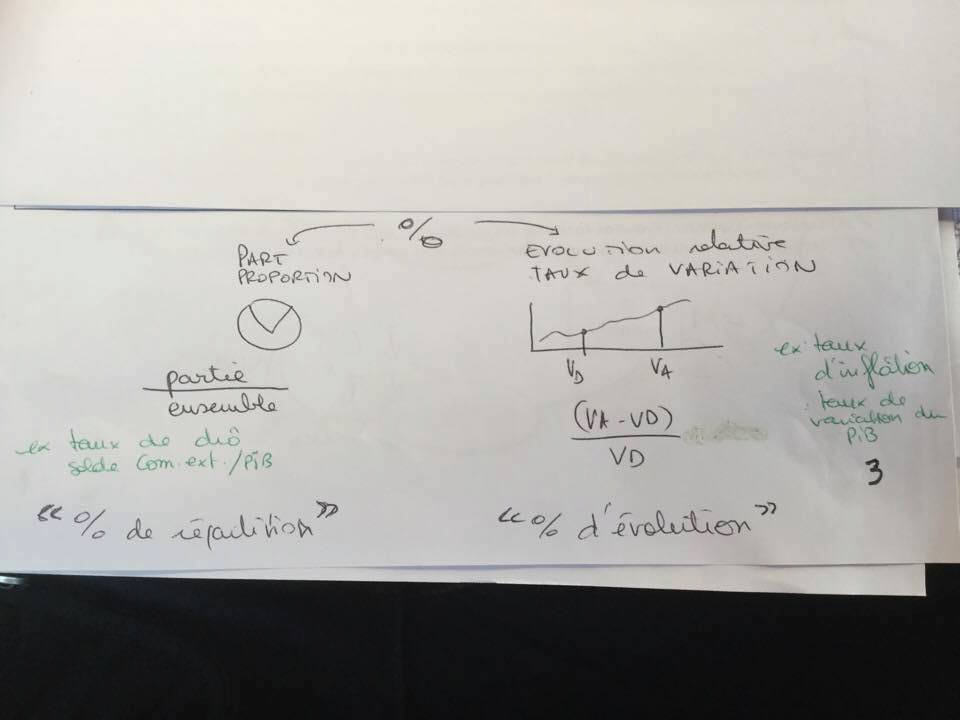 %
PART
PROPORTION
partie
ensemble
ex taux de chô
solde Com. ext. / PiB
« % de répartition »
EVOLUTION relative
TAUX de VARIATION
VD VA
(VA - VD)
VD
ex: taux
d'inflâtion
: taux de
variation du
PiB
3
« % d'évolution »